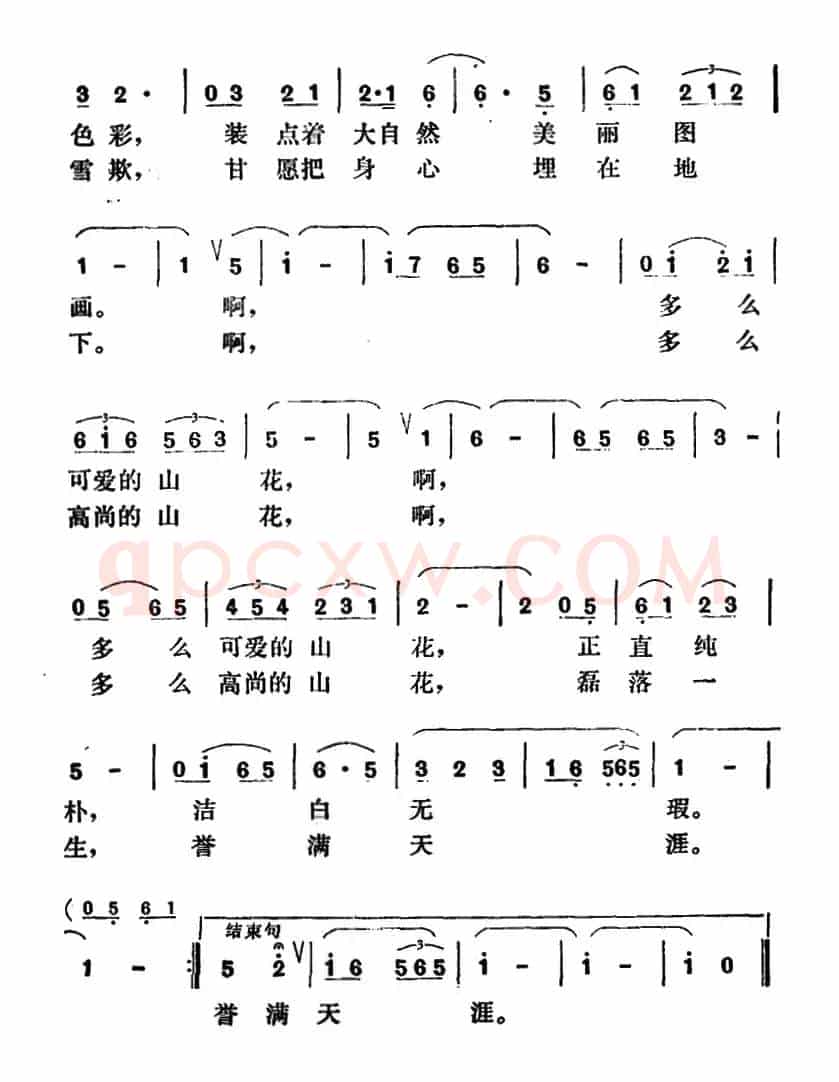 3 2 · | 0 3 2 1 | 2 · 1 6 | 6 · 5 | 6 1 2 1 2 |
色彩， 装 点着 大自然 美 丽 图
雪欺， 甘 愿把 身 心 埋 在 地
1 - | 1 5 | i - | i 7 6 5 | 6 - | 0 i 2 i |
画。 啊， 多 么
下。 啊， 多 么
6 i 6 5 6 3 | 5 - | 5 1 | 6 - | 6 5 6 5 | 3 - |
可爱的 山 花， 啊，
高尚的 山 花， 啊，
qpcxw.COM
0 5 6 5 | 4 5 4 2 3 1 | 2 - | 2 0 5 | 6 1 2 3 |
多 么 可爱的 山 花， 正 直 纯
多 么 高尚的 山 花， 磊 落 一
5 - | 0 i 6 5 | 6 · 5 | 3 2 3 | 1 6 5 6 5 | 1 - |
朴， 洁 白 无 瑕。
生， 誉 满 天 涯。
(0 5 6 1
结束句
1 - :| 5 2 | i 6 5 6 5 | i - | i - | i 0 |
誉 满 天 涯。